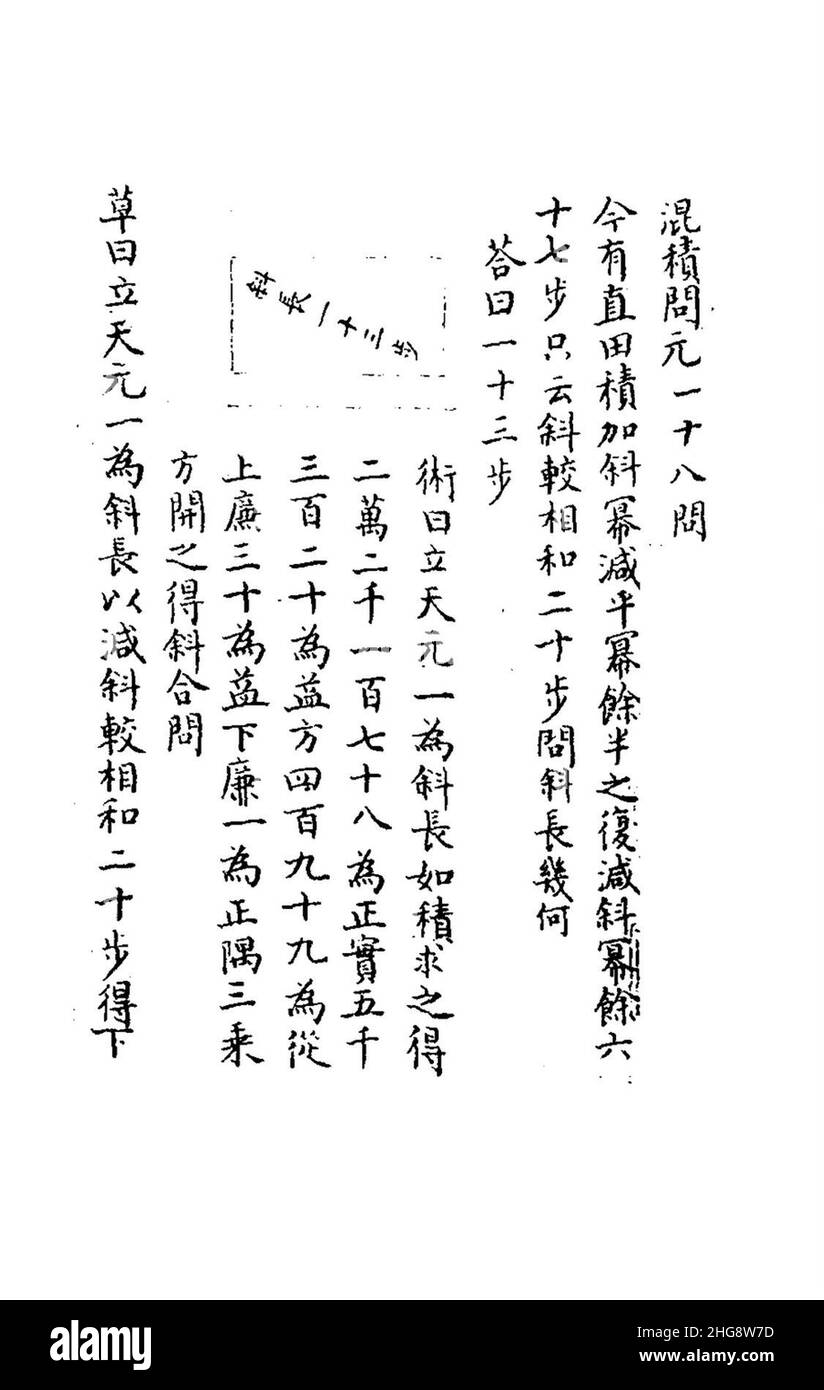 混積問元一十八問
今有直田積加斜冪減平冪餘半之復減斜冪餘六
十七步只云斜較相和二十步問斜長幾何
荅曰一十三步
斜長一十三步
術曰立天元一為斜長如積求之得
二萬二千一百七十八為正實五千
三百二十為益方四百九十九為從
上廉三十為益下廉一為正隅三乘
方開之得斜合問
草曰立天元一為斜長以減斜較相和二十步得下
alamy
Image ID: 2HG8W7D
www.alamy.com